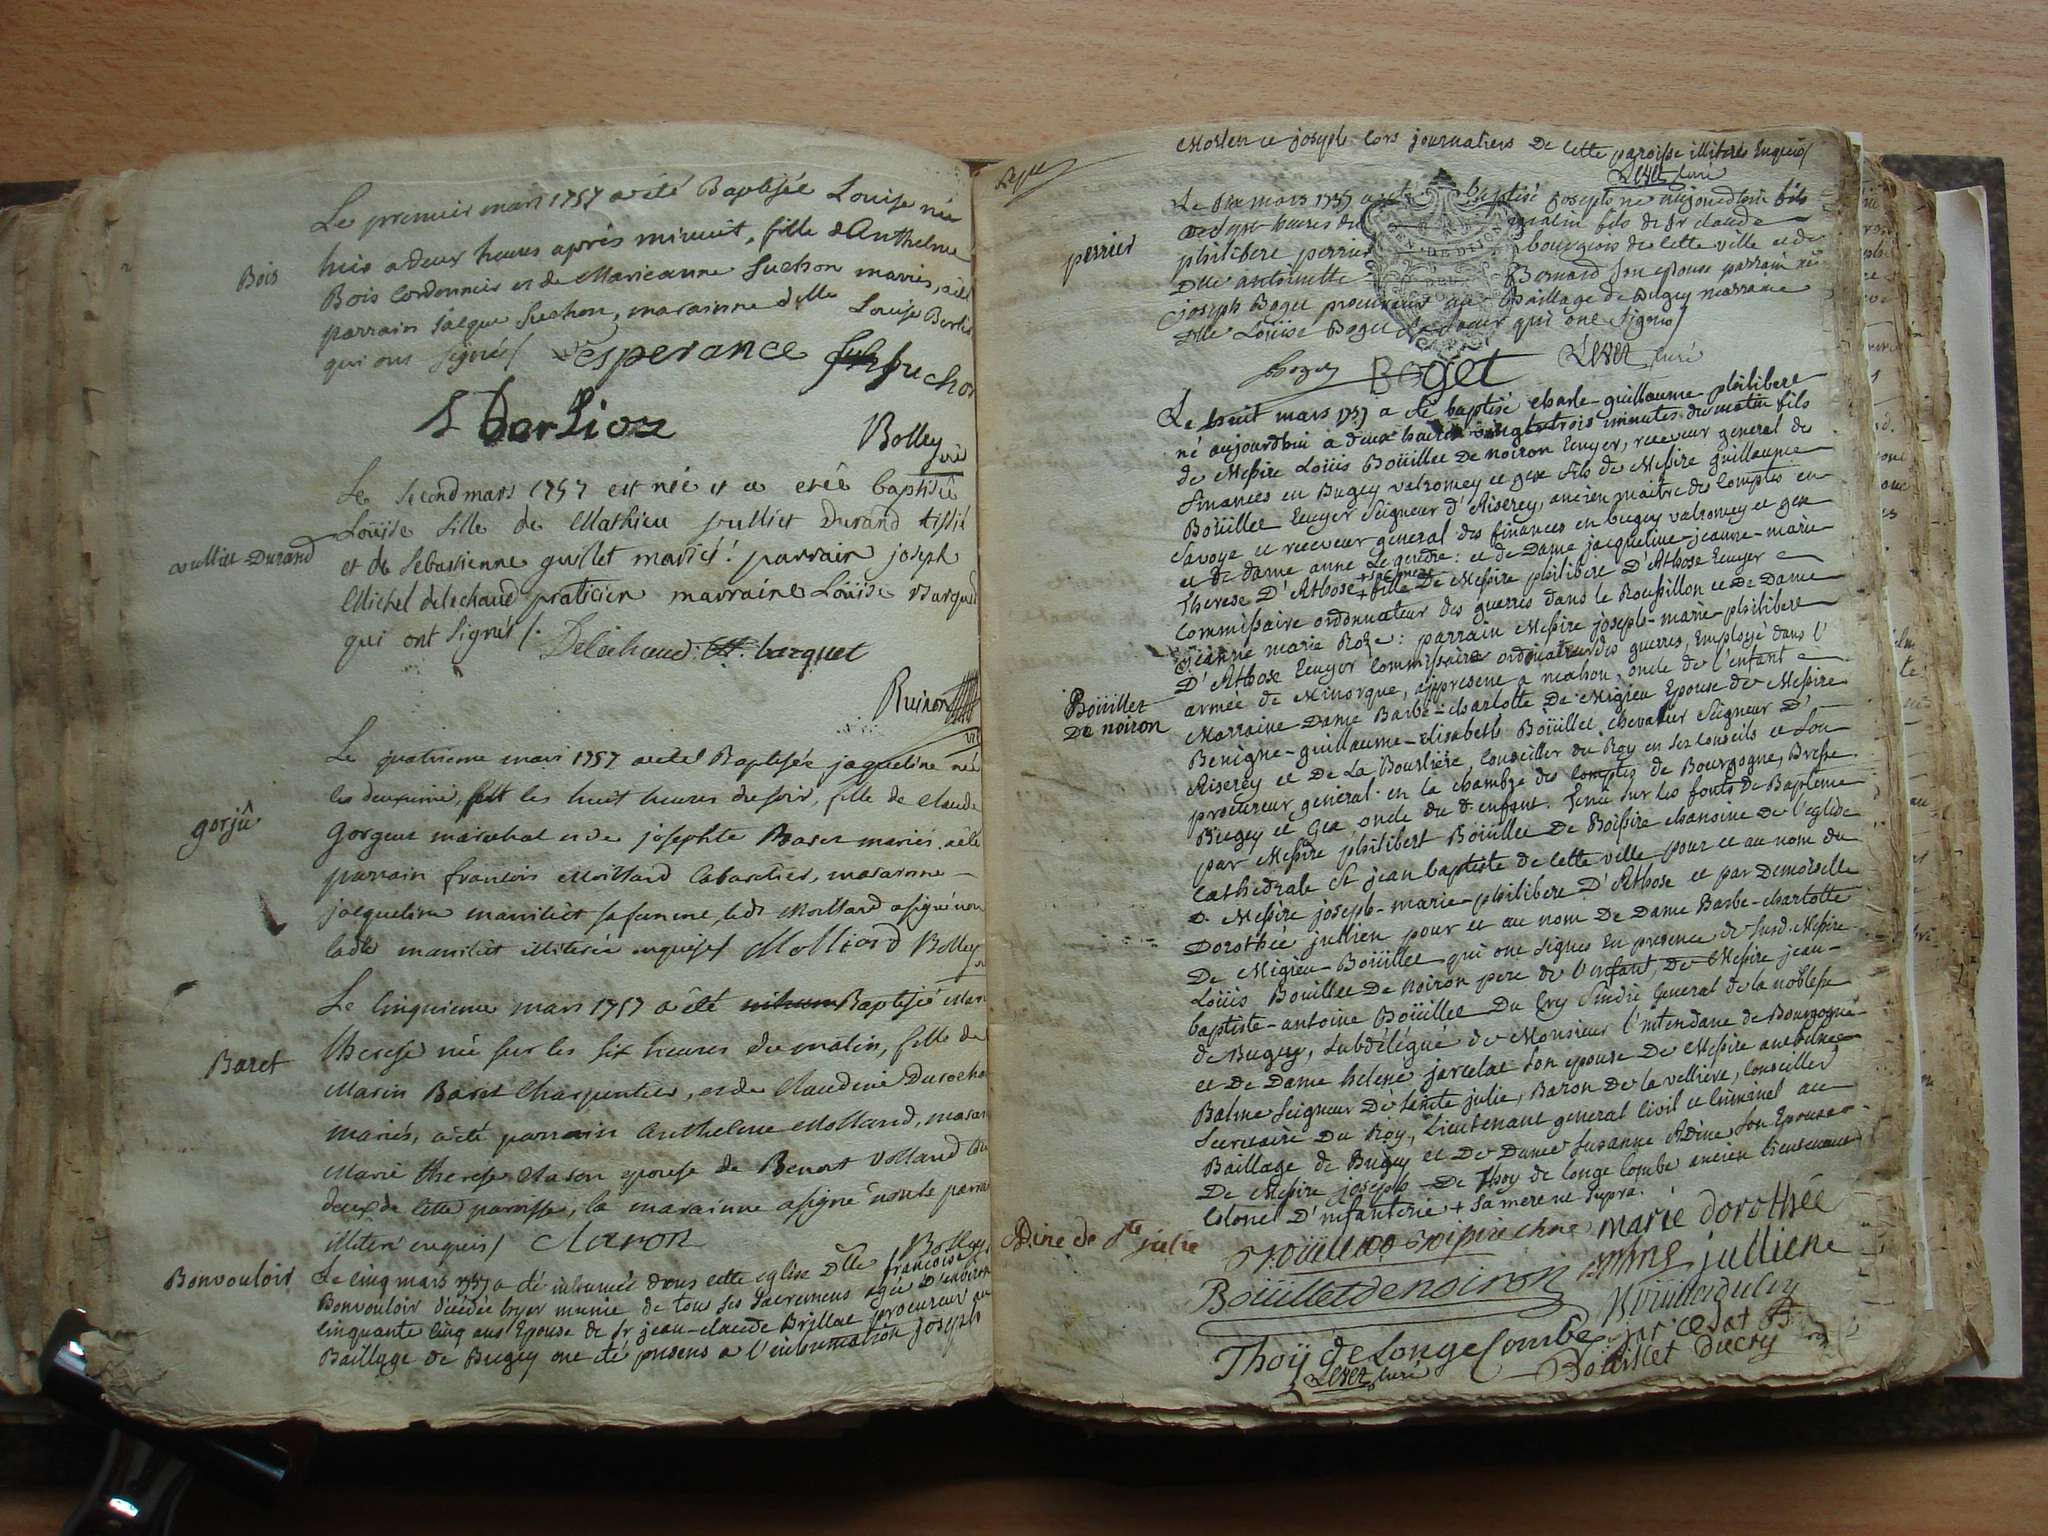 Le premier mars 1757 a été Baptisée Louise née
hier a deux heures après minuit, fille d'Anthelme
Bois
Bois Cordonnier et de Marieanne Suchon mariés, a été
parrain Jacque Suchon, maraine dlle Louise
qui ont signés/ esperance Suchon
Bolley
Le second mars 1757 est née et a étée baptisée
Loüise fille de Mathieu Durand
Durand
et de Sebastienne guillet mariés: parrain joseph
Michel delechaud praticien marraine Loüise
qui ont signés/. Delechaud barquet
Le quatrieme mars 1757 a été Baptisée jaqueline née
le deuxieme, les huit heures du soir, fille de Claude
gorjû
marechal et de josephte mariés. a été
parrain francois Cabaretier, maraine
jacqueline sa femme, ledt a signé non
ladte illiterée enquise/ Bolley
Le Cinquieme mars 1757 a été Baptisée
therese née sur les six heures du matin, fille de
Baret
Marin Baret Charpentier, et de Claudine
mariés, a été parrain Anthelme
Marie therese epouse de Benoit
deux de cette paroisse, la maraine a signé non le
illiteré enquis/
Bolley
Bonvouloir
Le cinq mars 1757 a été inhumée dans cette eglise Dlle francoise
Bonvouloir décédée hyer munie de tous ses Sacremens agée d'environ
cinquante cinq ans Epouse de Sr jean-claude Brillat procureur au
Baillage de Bugey ont été presens a l'inhumation joseph
et joseph journaliers de cette paroisse illiterés Enquis/
curé
mars 1757 a été baptisé joseph né aujourdhuy
heures du matin fils de Sr claude
perrier
philibert perrier bourgeois de cette ville et de
Dlle antoinette Bernard son epouse parrain
joseph Boget procureur au Baillage de Bugey marraine
Dlle Loüise Boget qui ont signés/
Boget curé
Le huit mars 1757 a été baptisé charle-guillaume-philibert
né aujourdhui a deux heures vingt trois minutes du matin fils
de Messire Loüis Boüillet De noiron Ecuyer, receveur general des
finances en Bugey valromey et gex fils de Messire guillaume
Boüillet Ecuyer Seigneur d'Aiserey, ancien maitre des Comptes en
Savoye et receveur general des finances en bugey valromey et gex
et de dame anne Legendre: et de Dame jacqueline-jeanne-marie
Therese D'Athose + fille De Messire philibert D'Athose Ecuyer
Commissaire ordonnateur des guerres dans le Roussillon et de Dame
jeanne marie Roze: parrain Messire joseph-marie-philibert
D'Athose Ecuyer Commissaire ordonnateur des guerres, Employé dans l'
armée de Minorque, appresent a mahon, oncle de l'enfant
Boüillet
De noiron
Marraine Dame Barbe-charlotte De Migieu Epouse de Messire
Benigne-guillaume-elisabeth Boüillet chevalier Seigneur D'
Aiserey et De La Boustière, Conseiller du Roy en ses conseils et Son
procureur general en la chambre des Comptes de Bourgogne, Bresse
Bugey et Gex, oncle du d. enfant. Tenu sur les fonts de Baptême
par Messire philibert Boüillet De Boissire chanoine de l'eglise
Cathedrale St jean baptiste de cette ville pour et au nom du
d. Messire joseph-marie-philibert D'Athose et par Demoiselle
Dorothée jullien pour et au nom De Dame Barbe-charlotte
De Migieu-Boüillet qui ont signés En presence de Messire
Loüis Bouillet De noiron pere de l'enfant, De Messire jean-
baptiste-antoine Boüillet Du Cry Sindic General de la noblesse
de Bugey, Subdélégué de Monsieur l'intendant de Bourgogne
et De Dame helene jarcelat son epouse De Messire anthelme
Balme Seigneur De Sainte julie, Baron De la velliere, Conseiller
Secretaire Du Roy, Lieutenant general Civil et Criminel au
Baillage de Bugey et De Dame Susanne Adine Son Epouse
De Messire joseph De Thoy de longe Combe ancien Lieutenant
Colonel D'infanterie + sa mere ut supra.
Adine de Ste julie
marie dorothée
jullien
Boüillet de noiron
Thoÿ de Longe Combe
Boüillet ducry
curé